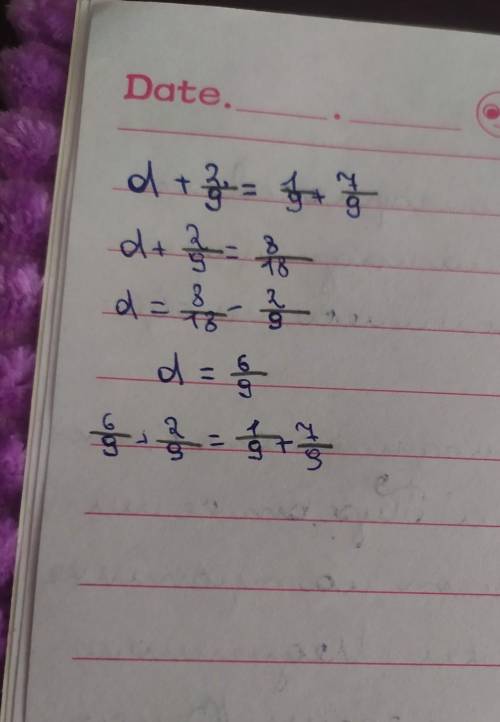 Date.______.______
d + 2/9 = 1/9 + 7/9
d + 2/9 = 8/18
d = 8/18 - 2/9
d = 6/9
6/9 + 2/9 = 1/9 + 7/9